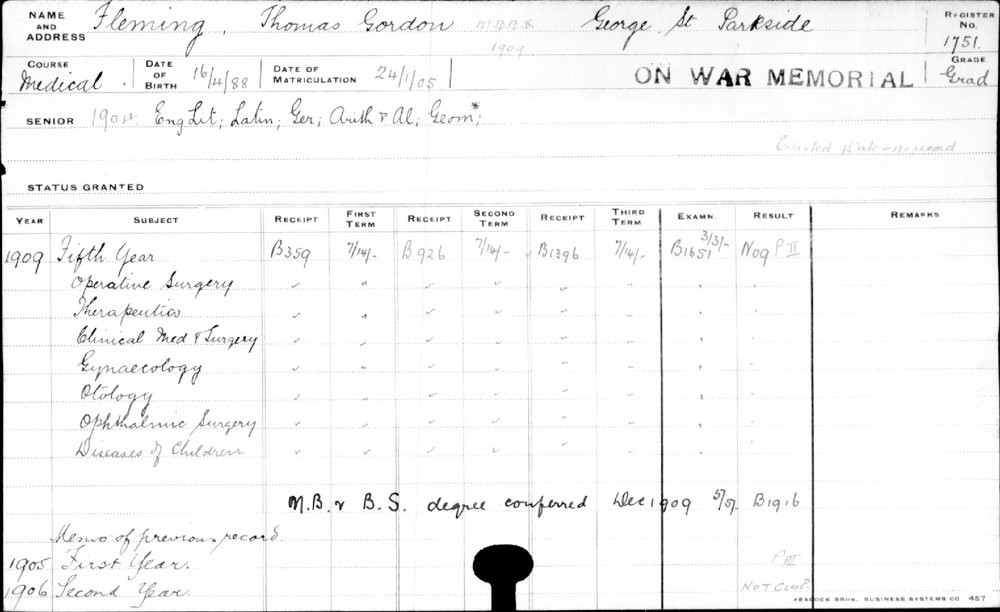 NAME AND ADDRESS Fleming, Thomas Gordon M.B.B.S. 1909 George St Parkside REGISTER NO. 1751.
COURSE Medical. DATE OF BIRTH 16/4/88 DATE OF MATRICULATION 24/1/05 ON WAR MEMORIAL GRADE Grad
SENIOR 1904 Eng Lit; Latin; Ger; Arith & Al; Geom*;
Enlisted - Date - no record
STATUS GRANTED
YEAR SUBJECT RECEIPT FIRST TERM RECEIPT SECOND TERM RECEIPT THIRD TERM EXAMN. RESULT REMARKS
1909 Fifth Year B359 7/14/- B926 7/14/- B1396 7/14/- B1651 3/3/- No9 P II
Operative Surgery " " " " " " " "
Therapeutics " " " " " " " "
Clinical Med & Surgery " " " " " " " "
Gynaecology " " " " " " " "
Otology " " " " " " " "
Ophthalmic Surgery " " " " " " " "
Diseases of Children " " " " " " " "
M.B. & B.S. degree conferred Dec 1909 5/5/- B1916
Memo of previous record.
1905 First Year. P III
1906 Second Year. NOT CLASS?
PEACOCK BROS. BUSINESS SYSTEMS CO. 457